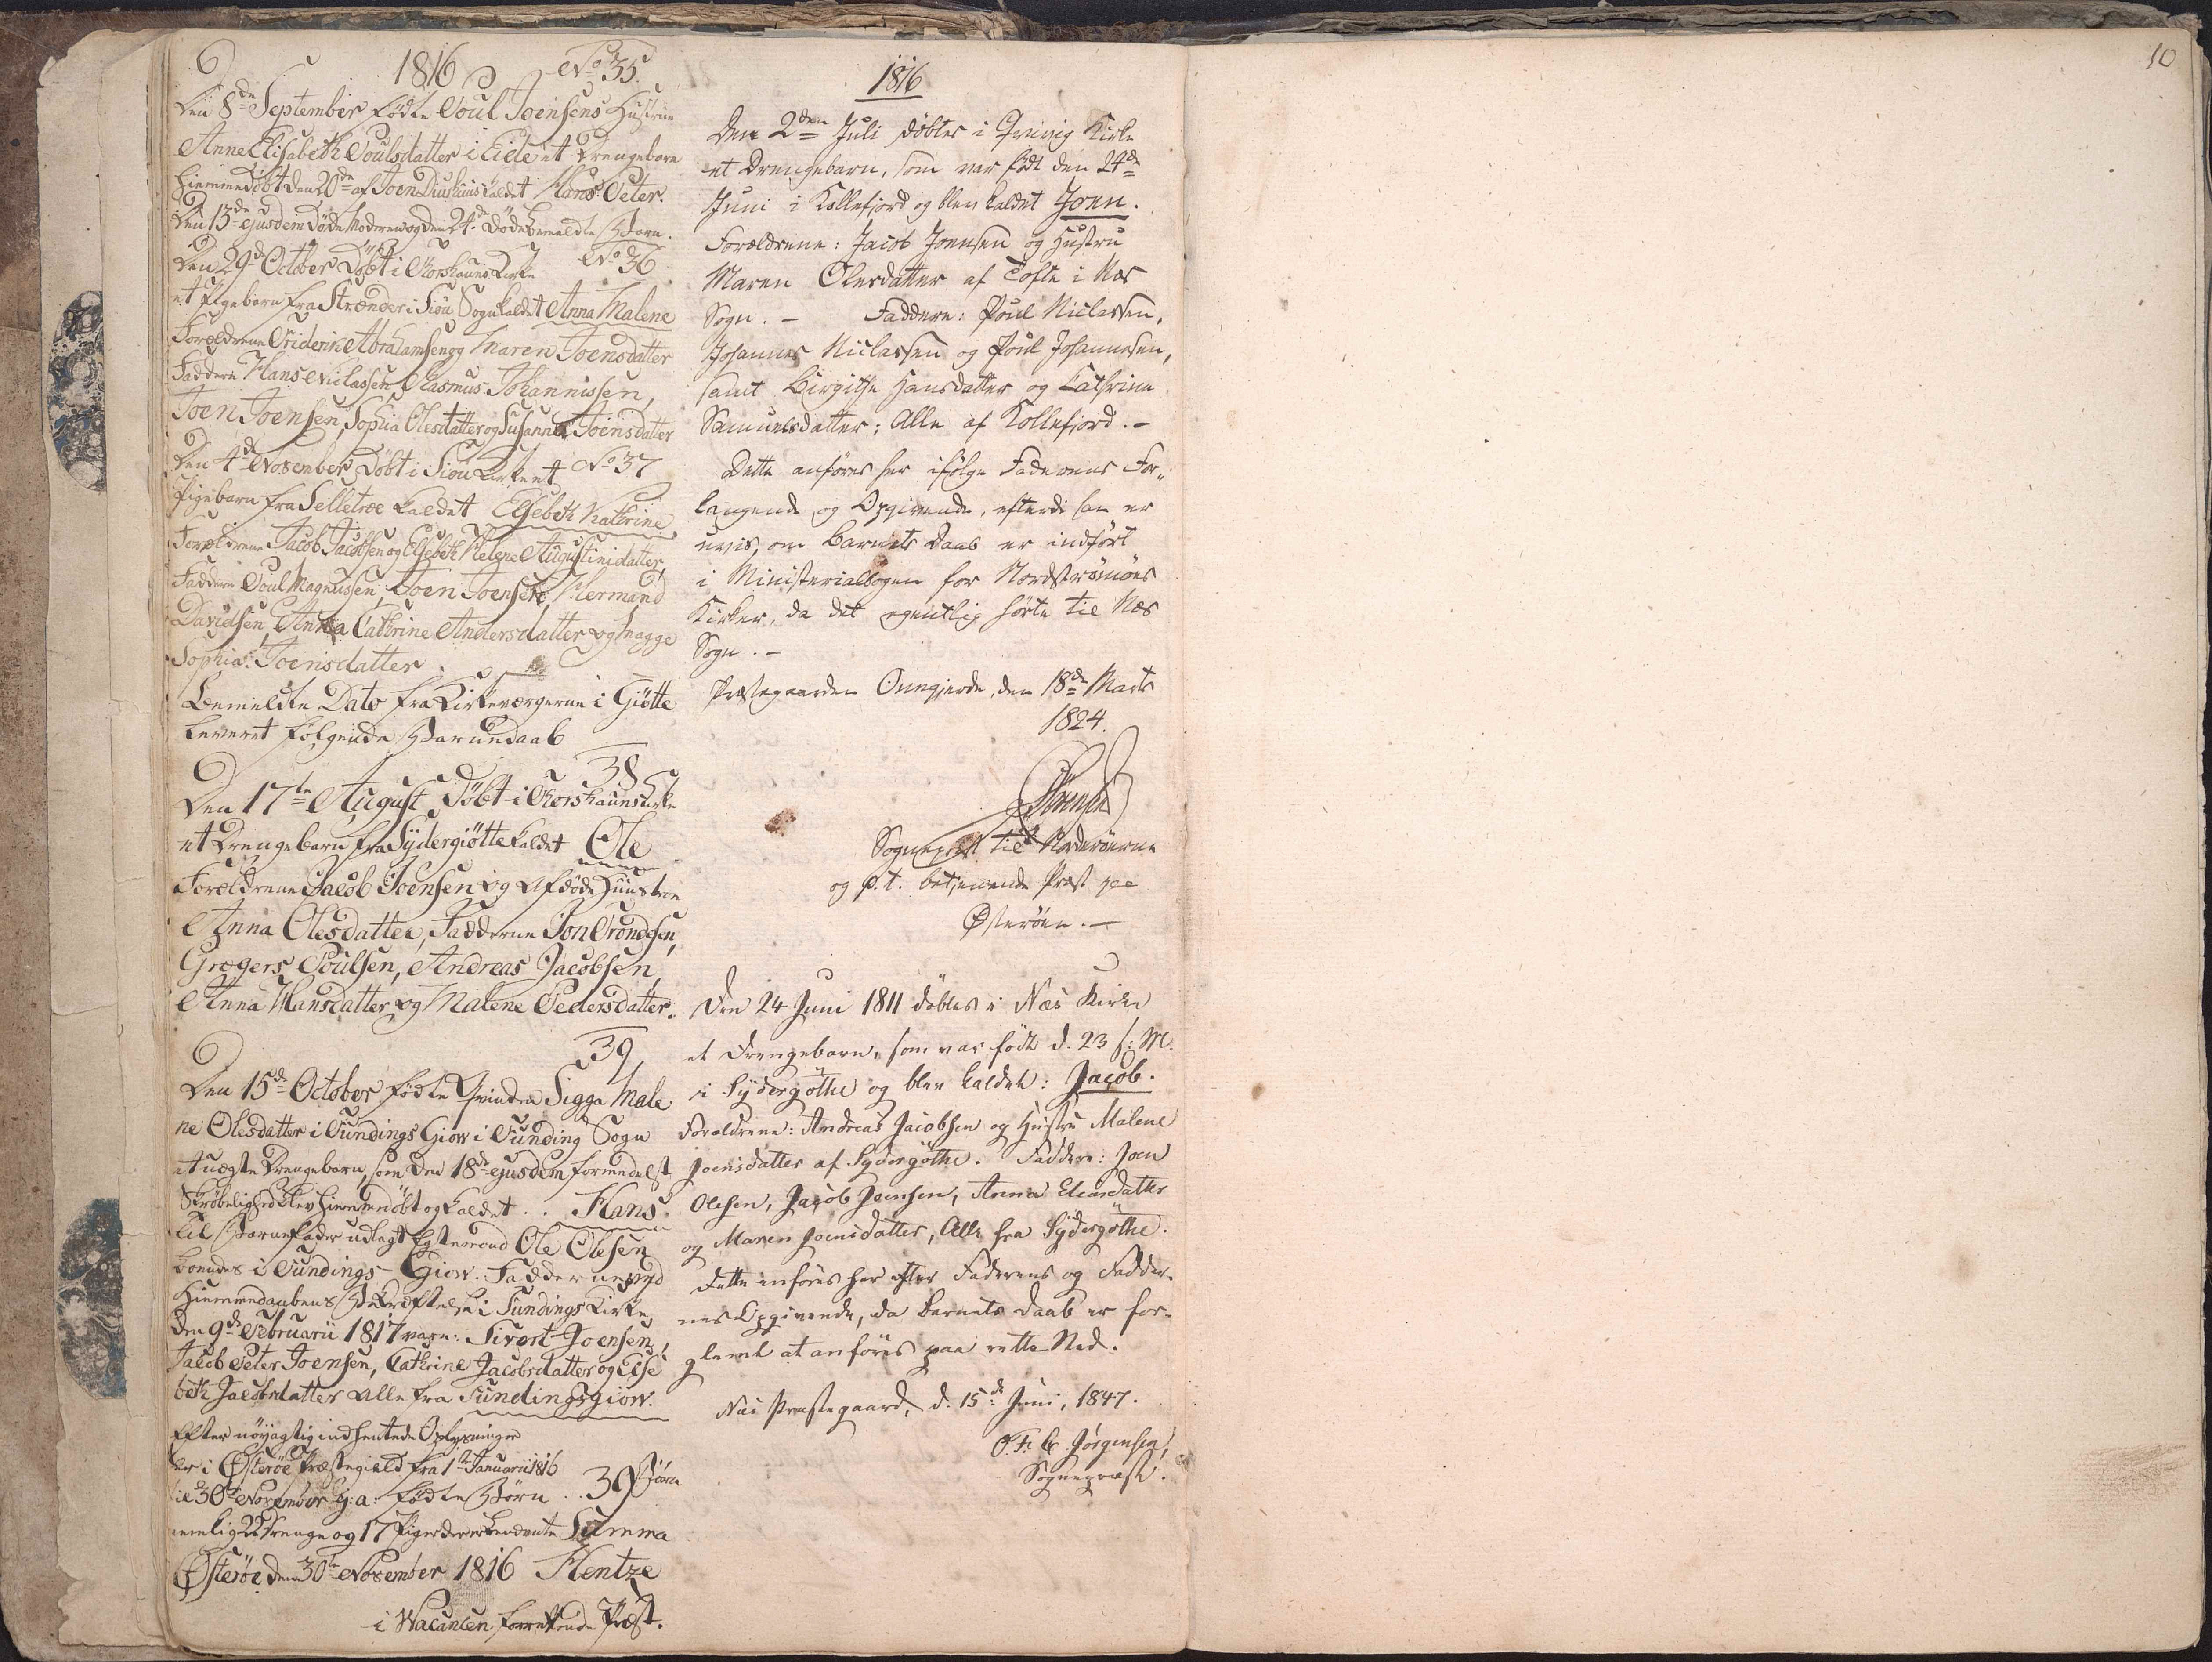 1816 No 35.
Den 8de September fødte Poul Joensens Hustrue
Anne Elisabeth Poulsdatter i Eide et Drengebarn
hiemmedøbt den 20de af Joen kaldet Hans Peter.
Den 13de ejusdem døde Moderen og den 24de døde bemeldte Barn.
Den 29de October Døbt i Thorshauns Kirke No 36
et Pigebarn fra Strænder i Siou Sogn kaldet Anna Malene
Forældrene Friderik Abrahamsen og Maren Joensdatter
Faddere Hans Niclassen, Rasmus Johannissen,
Joen Joensen, Sophia Olesdatter og Susanna Joensdatter
Den 4de November Døbt i Siou Kirke et No 37
Pigebarn fra Selletræ kaldet Elsebeth Kathrine
Forældrene Jacob Jacobsen og Elsebeth Helene Augustinidatter,
Faddere Poul Magnussen, Joen Joensen, Hermand
Davidsen, Anna Cathrine Andersdatter og Magge
Sophia Joensdatter.
Bemeldte Dato fra Kirkeværgerne i Giøtte
leveret følgende Barnedaab
38
Den 17de August Døbt i Thorshauns Kirke
et Drengebarn fra Sydergiøtte kaldet Ole
Forældrene Jacob Joensen og Afdøde Huustroe
Anna Olesdatter, Fadderne Jon Trondesen,
Grægers Poulsen, Andreas Jacobsen
Anna Hansdatter og Malene Pedersdatter.
39
Den 15de October fødte Qvinden Sigga Male
ne Olesdatter i Fundings Giow i Funding Sogn
et uægte Drengebarn, som den 18de ejusdem formedelst
Skrøbelighed blev hiemmedøbt og kaldet . . Hans.
til Barnefader udlagt Ægtemand Ole Olesen
boendes i Fundings Giow. Fadderne ved
Hiemmedaabens Bekræftelse i Fundings Kirke
den 9de Februarii 1817 vare: Sivert Joensen,
Jacob Peter Joensen, Cathrine Jacobsdatter og Else
beth Jacobsdatter alle fra Fundingsgiow.
Efter nøyagtig indhentede Oplysninger
er i Østerøe Præstegield fra 1te Januarii 1816
til 30te November h: a: fødte Børn . . 39 Børn
nemlig 22 Drenge og 17 Piger Summa
Østerøe den 30te November 1816 Hentze
i Vacancen forrettende Præst.
1816
Den 2den Juli døbtes i Qvivig Kirke
et Drengebarn, som var født den 24de
Juni i Kollefjord og blev kaldet Joen.
Forældrene: Jacob Joensen og Hustru
Maren Olesdatter af Tofte i Næs
Sogn. – Faddere: Poul Niclassen,
Johannes Niclassen og Poul Johannesen,
samt Birgithe Hansdatter og Cathrine
Samuelsdatter; Alle af Kollefjord. –
Dette anføres her ifølge Faderens For-
langende og Opgivende, efterdi han er
uvis, om Barnets Daab er indført
i Ministerialbogen for Nordstrømøes
Kirker, da det egentlig hørte til Næs
Sogn. –
Præstegaarden Onnagjerde, den 18de Marts
1824.
Sørensen
Sognepræst til Norderøerne
og p.t. betjenende Præst paa
Østerøen. –
Den 24 Juni 1811 døbtes i Næs Kirke
et Drengebarn, som var født d. 23 s: M.
i Sydergøthe og blev kaldet: Jacob.
Forældrene: Andreas Jacobsen og Hustru Malene
Joensdatter af Sydergøthe. Faddere: Joen
Olesen, Jacob Joensen, Anna Eliasdatter
og Maren Joensdatter, Alle fra Sydergøthe.
Dette anføres her efter Faderens og Fadder-
nes Opgivende, da Barnets Daab er for-
glemt at anføres paa rette Sted.
Næs Præstegaard, d. 15de Juni, 1847.
O. F. C. Jørgensen,
Sognepræst.
10